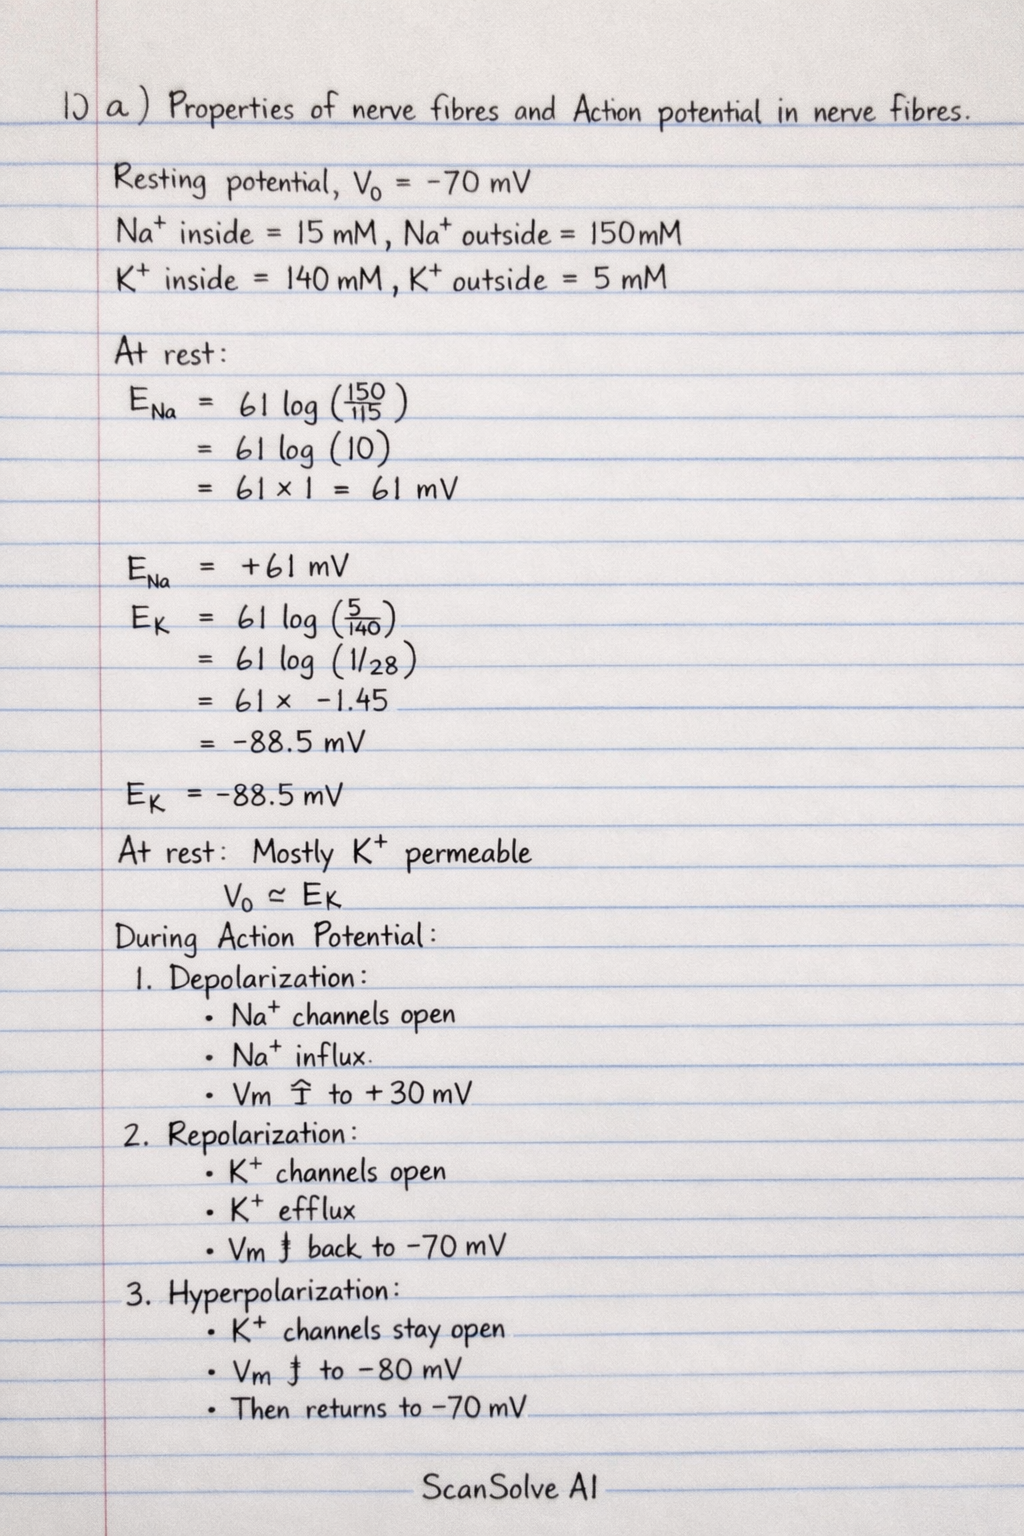 1) a) Properties of nerve fibres and Action potential in nerve fibres.
Resting potential, V₀ = -70 mV
Na⁺ inside = 15 mM, Na⁺ outside = 150mM
K⁺ inside = 140 mM, K⁺ outside = 5 mM
At rest:
E_Na = 61 log (150/115)
= 61 log (10)
= 61 × 1 = 61 mV
E_Na = +61 mV
E_K = 61 log (5/140)
= 61 log (1/28)
= 61 × -1.45
= -88.5 mV
E_K = -88.5 mV
At rest: Mostly K⁺ permeable
V₀ ≃ E_K
During Action Potential:
1. Depolarization:
• Na⁺ channels open
• Na⁺ influx.
• Vm ↑ to +30 mV
2. Repolarization:
• K⁺ channels open
• K⁺ efflux
• Vm ↓ back to -70 mV
3. Hyperpolarization:
• K⁺ channels stay open
• Vm ↓ to -80 mV
• Then returns to -70 mV
ScanSolve AI